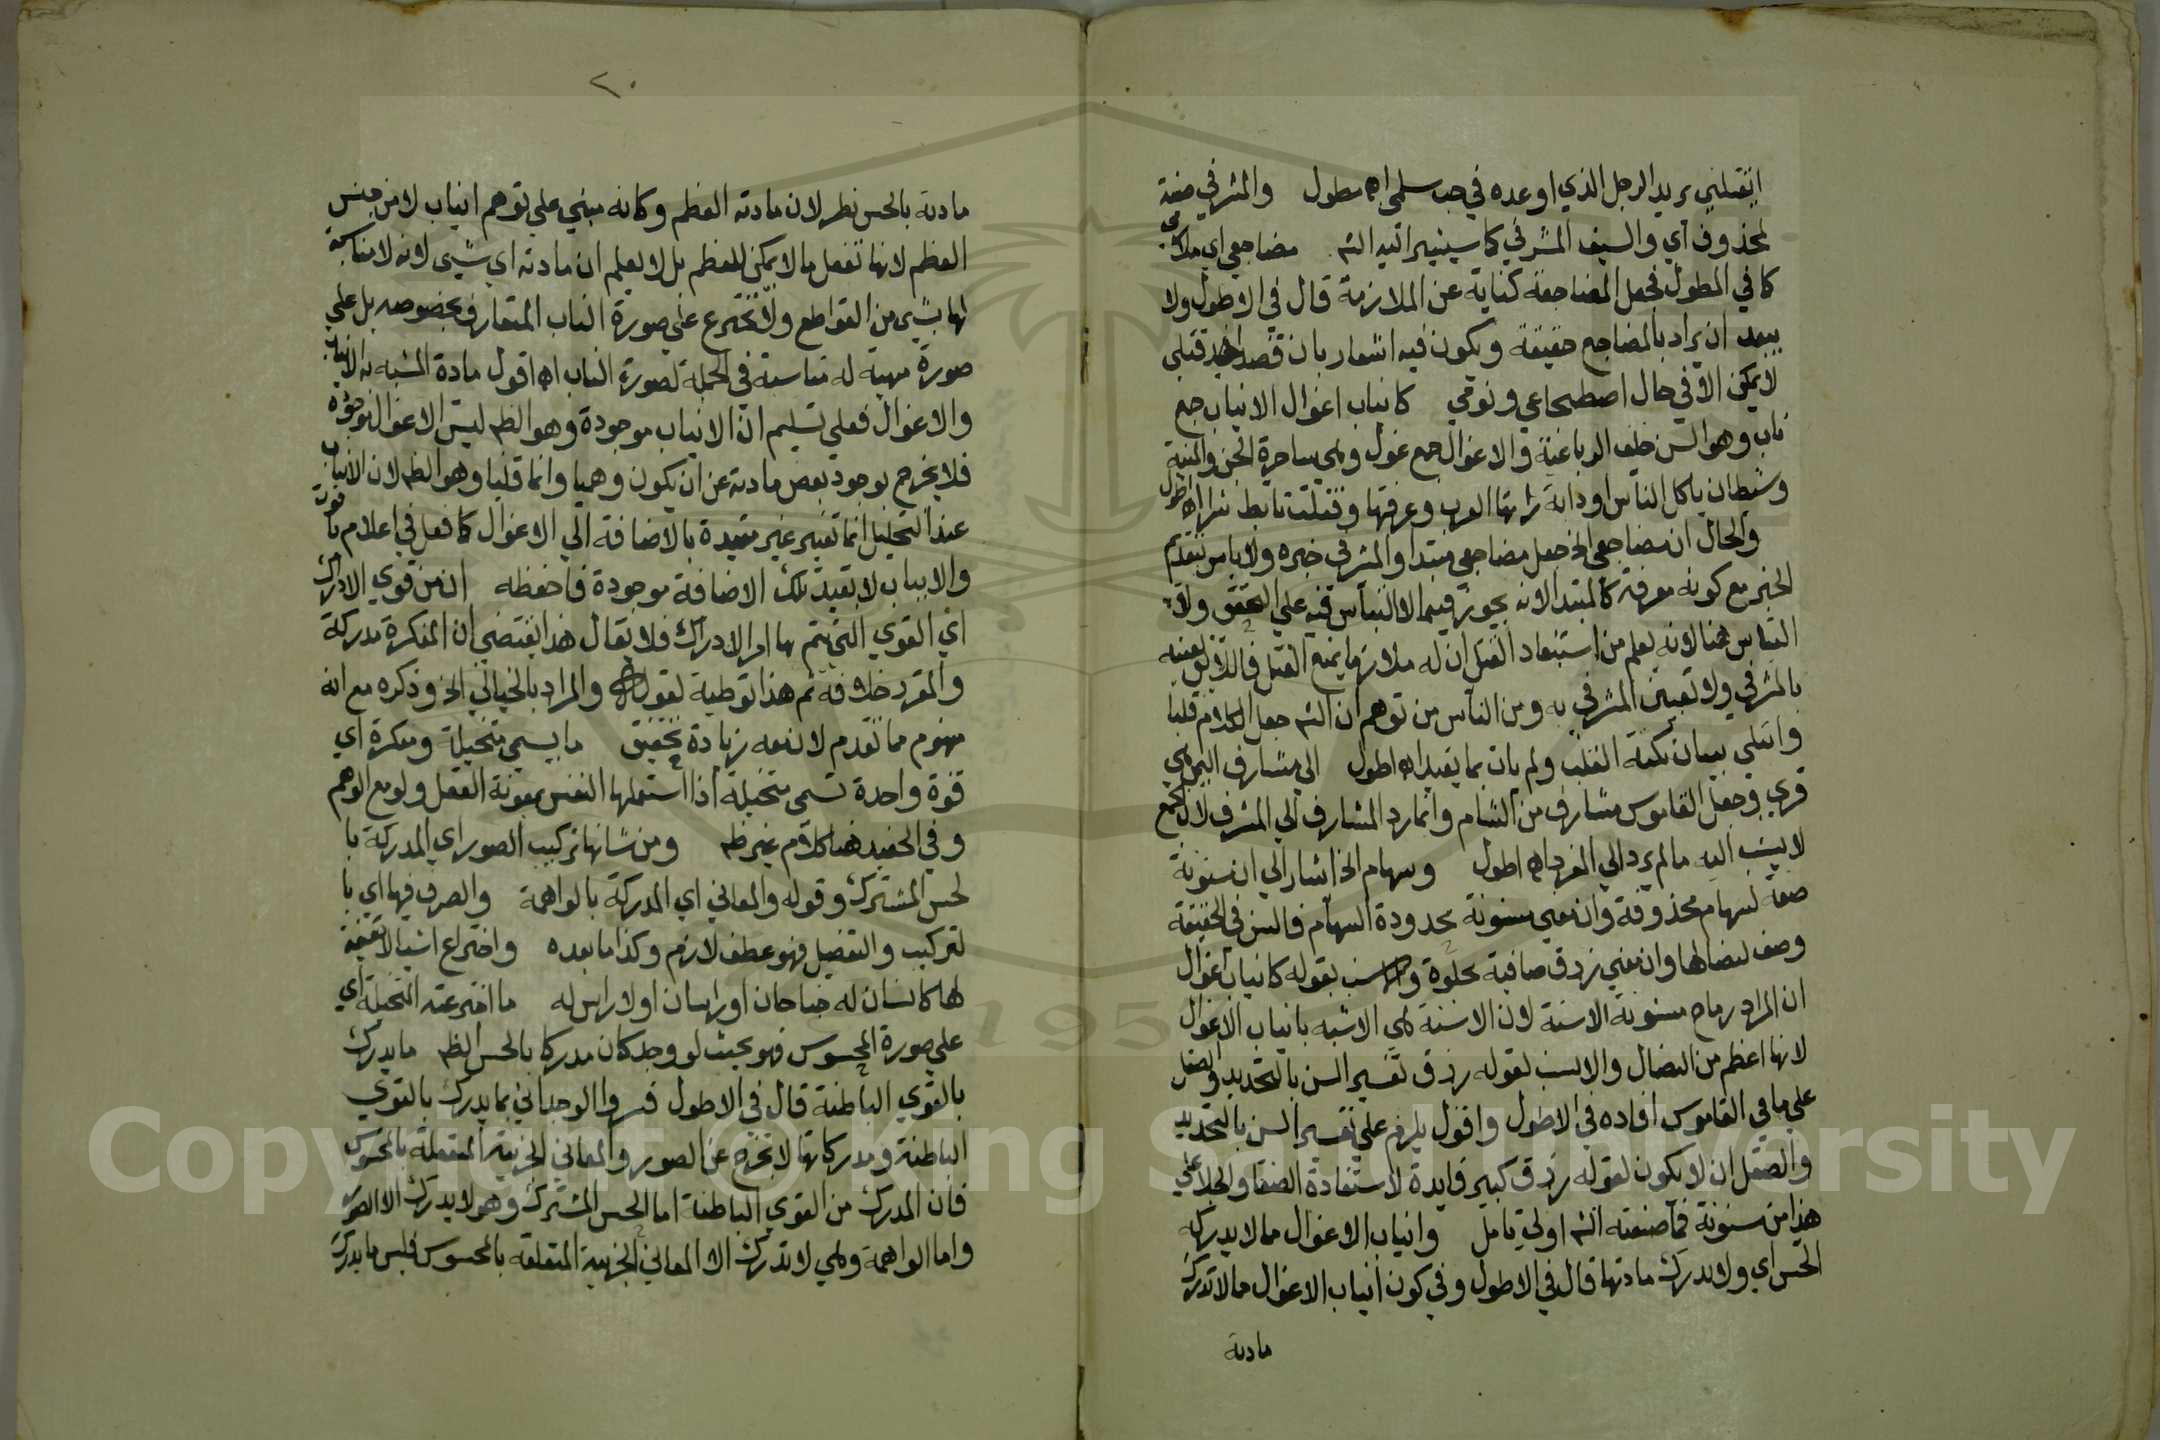 ايقتلني يريد الرجل الذي اوعده في حب سلمى اه مطول والمشرفي صفة
لمحذوف اي والسيف المشرفي كما سيشير اليه الشم مضاجعي اي ملازمي
كما في المطول فجعل المضاجعة كناية عن الملازمة قال في الاطول ولا
يبعد ان يراد بالمضاجع حقيقة ويكون فيه اشعار بان قصد احد قتلي
لا يمكن الا في حال اضطجاعي ونومي كانياب اغوال الانياب جمع
ناب وهو السن خلف الرباعية والاغوال جمع غول وهي ساحرة الجن والمنية
وشيطان ياكل الناس او دابة راتها العرب وعرفتها وقتلت تابط شرا اه اطول
والحال ان مضاجعي الخ جعل مضاجعي مبتدا والمشرفي خبره ولا باس بتقدم
الخبر مع كونه معرفة كالمبتدا لانه يجوز فيما لا التباس فيه على المحقق ولا
التباس هنا لانه يعلم من استبعاد القتل ان له ملازما يمنع القتل فاللائق تعينه
بالمشرفي ولا تعيين المشرفي به ومن الناس من توهم ان الشم جعل الكلام قلبا
وابتلي ببيان نكتة القلب ولم يات بما يفيد اه اطول الي مشارف اليمن هي
قري وجعل القاموس مشارف من الشام وانما رد المشارف الي المشرف لان الجمع
لا ينسب اليه ما لم يرد الي المفرد اه اطول وسهام الخ اشار الي ان مسنونة
صفة لسهام محذوفة وان معني مسنونة محدودة السهام فالسن في الحقيقة
وصف لنصالها وان معني زرق صافية مجلوة والانسب بقوله كانياب اغوال
ان المراد رماح مسنونة الاسنة لان الاسنة هي الاشبه بانياب الاغوال
لانها اعظم من النصال والانسب لقوله زرق تفسير السن بالتحديد والصقل
علي ما في القاموس افاده في الاطول واقول يلزم علي تفسير السن بالتحديد
والصقل ان لا يكون لقوله زرق كبير فايدة لاستفادة الصفا والجلا علي
هذا من مسنونة فما صنعته الشم اولي تامل وانياب الاغوال مما لا يدركه
الحس اي ولا تدرك مادتها قال في الاطول وفي كون انياب الاغوال مما لا تدرك
مادته
٢٠
مادته بالحس نظر لان مادته العظم وكانه مبني علي توهم انياب لا من جنس
العظم لانها تفعل ما لا يمكن للعظم بل لا يعلم ان مادته اي شيء لانه لا مناسبة
لها بشيء من القواطع ولا تخترع علي صورة الناب المتعارف بخصوصه بل علي
صورة مهيبة له مناسبة في الجملة لصورة الناب اه اقول مادة المشبه به الانياب
والاغوال فعلي تسليم ان الانياب موجودة وهو الظم ليس الاغوال موجودة
فلا يخرج بوجود بعض مادته عن ان يكون وهميا وانما قلنا وهو الظم لان الانياب
عند التحليل انما تعتبر غير مقيدة بالاضافة الي الاغوال كما فعل في اعلام ياقوت
والانياب لا بقيد تلك الاضافة موجودة فاحفظه ان من قوي الادراك
اي القوي التي يتم بها امر الادراك فلا يقال هذا يقتضي ان المفكرة مدركة
والمقرر خلافه ثم هذا توطية لقوله والمراد بالخيالي الخ وذكره مع انه
مفهوم مما تقدم لان معه زيادة تحقيق ما يسمى متخيلة ومفكرة اي
قوة واحدة تسمى متخيلة اذا استعملها النفس بمعونة العقل ولو مع الوهم
وفي الحفيد هنا كلام غير ظم ومن شانها تركيب الصور اي المدركة با
لحس المشترك وقوله والمعاني اي المدركة بالواهمة والتصرف فيها اي با
لتركيب والتفصيل فهو عطف لازم وكذا ما بعده واختراع اشيا لا حقيقة
لها كانسان له جناحان او راسان او لا راس له ما اخترعته المتخيلة اي
علي صورة المحسوس فهو بحيث لو وجد كان مدركا بالحس الظم ما يدرك
بالقوي الباطنة قال في الاطول فسروا الوجداني بما يدرك بالقوي
الباطنة ومدركاتها لا تخرج عن الصور والمعاني الجزيية المتعلقة بالمحسوس
فان المدرك من القوي الباطنة اما الحس المشترك وهو لا يدرك الا الصور
واما الواهمة وهي لا تدرك الا المعاني الجزيية المتعلقة بالمحسوس فليس ما يدرك
Copyright © King Saud University